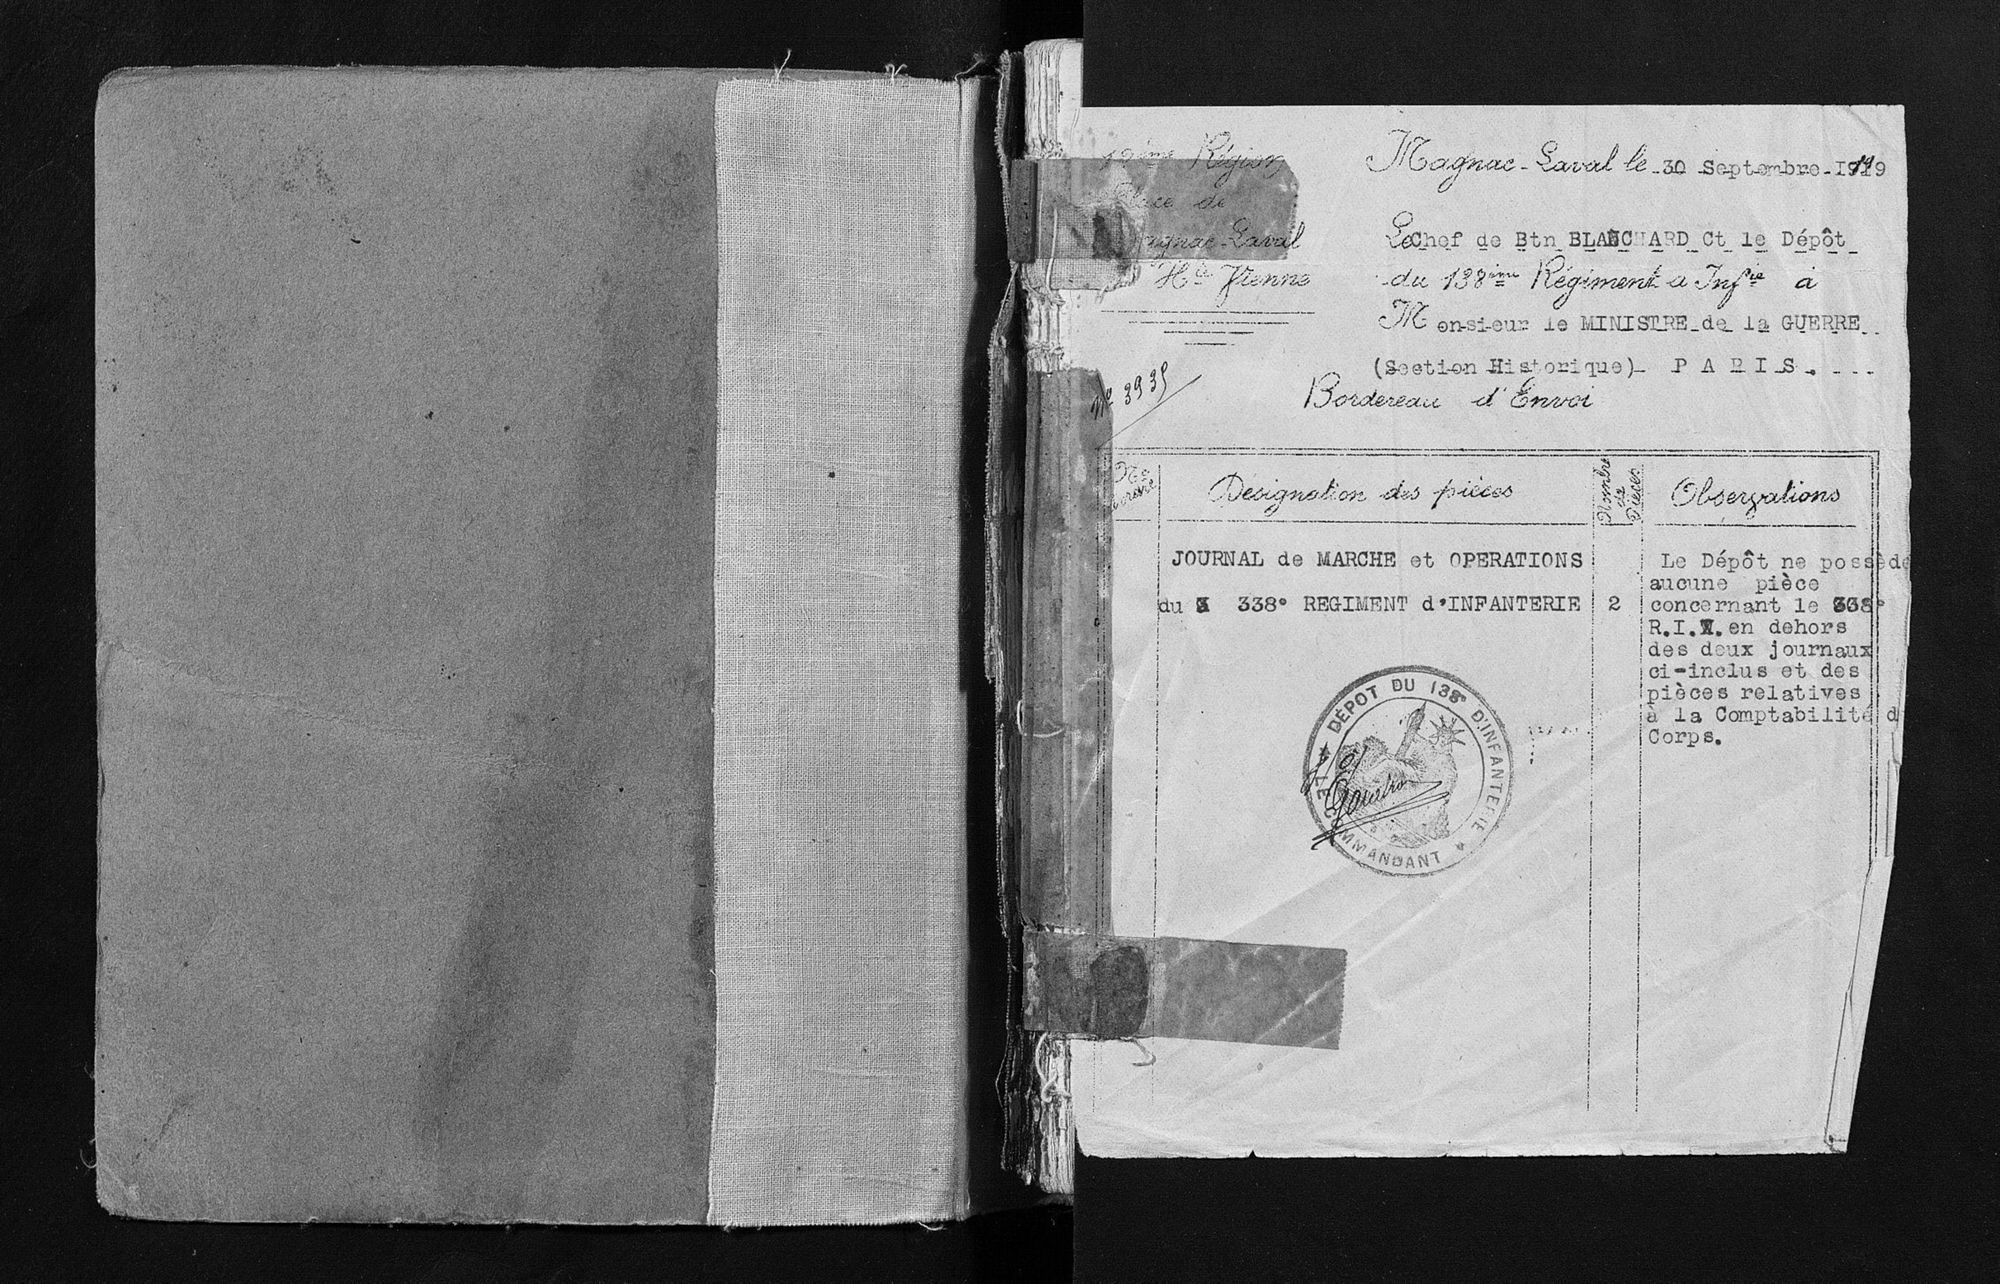 12ème Région
Place de
Magnac-Laval
Hte Vienne
Nº 3935
Magnac-Laval le 30 Septembre 1919
Le Chef de Btn BLANCHARD Ct le Dépôt
du 138ème Régiment d'Infie à
Monsieur le MINISTRE de la GUERRE
(Section Historique) PARIS.
Bordereau d'Envoi
Nos
d'ordre
Désignation des pièces
Nombre
de
Pièces
Observations
JOURNAL de MARCHE et OPERATIONS
du 338° REGIMENT d'INFANTERIE
2
Le Dépôt ne possède
aucune pièce
concernant le 338°
R.I. en dehors
des deux journaux
ci-inclus et des
pièces relatives
à la Comptabilité d
Corps.
DÉPOT DU 138e D'INFANTERIE
LE COMMANDANT